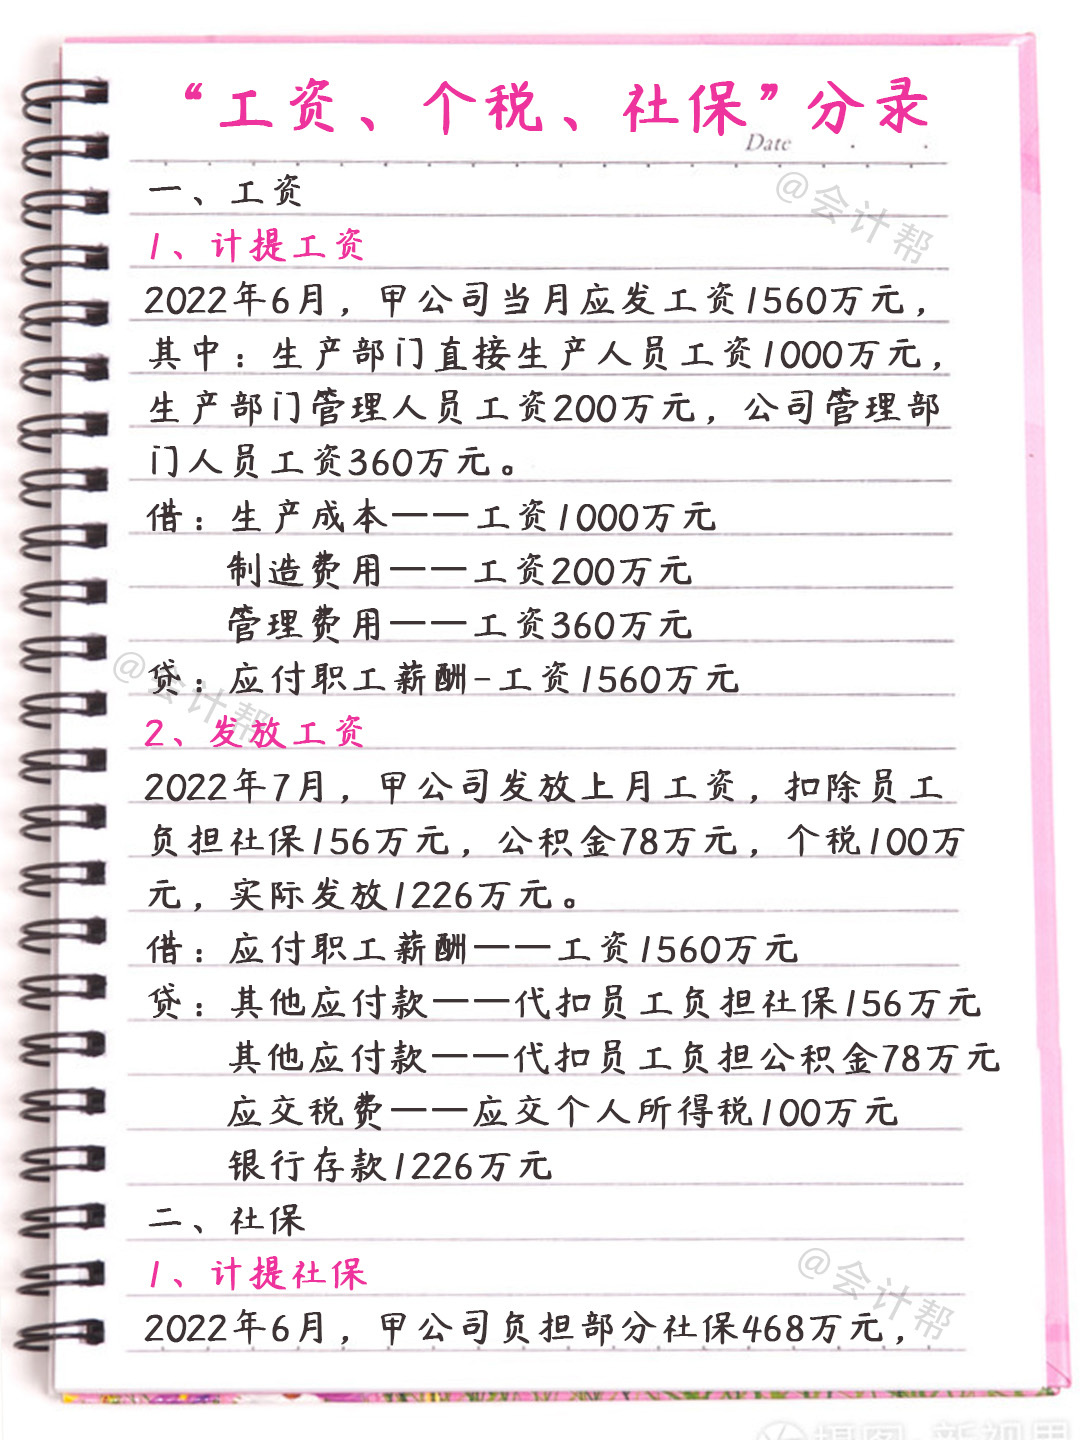 “工资、个税、社保”分录
Date
@会计帮
一、工资
1、计提工资
2022年6月，甲公司当月应发工资1560万元，
其中：生产部门直接生产人员工资1000万元，
生产部门管理人员工资200万元，公司管理部
门人员工资360万元。
借：生产成本——工资1000万元
制造费用——工资200万元
管理费用——工资360万元
贷：应付职工薪酬-工资1560万元
@会计帮
2、发放工资
2022年7月，甲公司发放上月工资，扣除员工
负担社保156万元，公积金78万元，个税100万
元，实际发放1226万元。
借：应付职工薪酬——工资1560万元
贷：其他应付款——代扣员工负担社保156万元
其他应付款——代扣员工负担公积金78万元
应交税费——应交个人所得税100万元
银行存款1226万元
二、社保
1、计提社保
@会计帮
2022年6月，甲公司负担部分社保468万元，